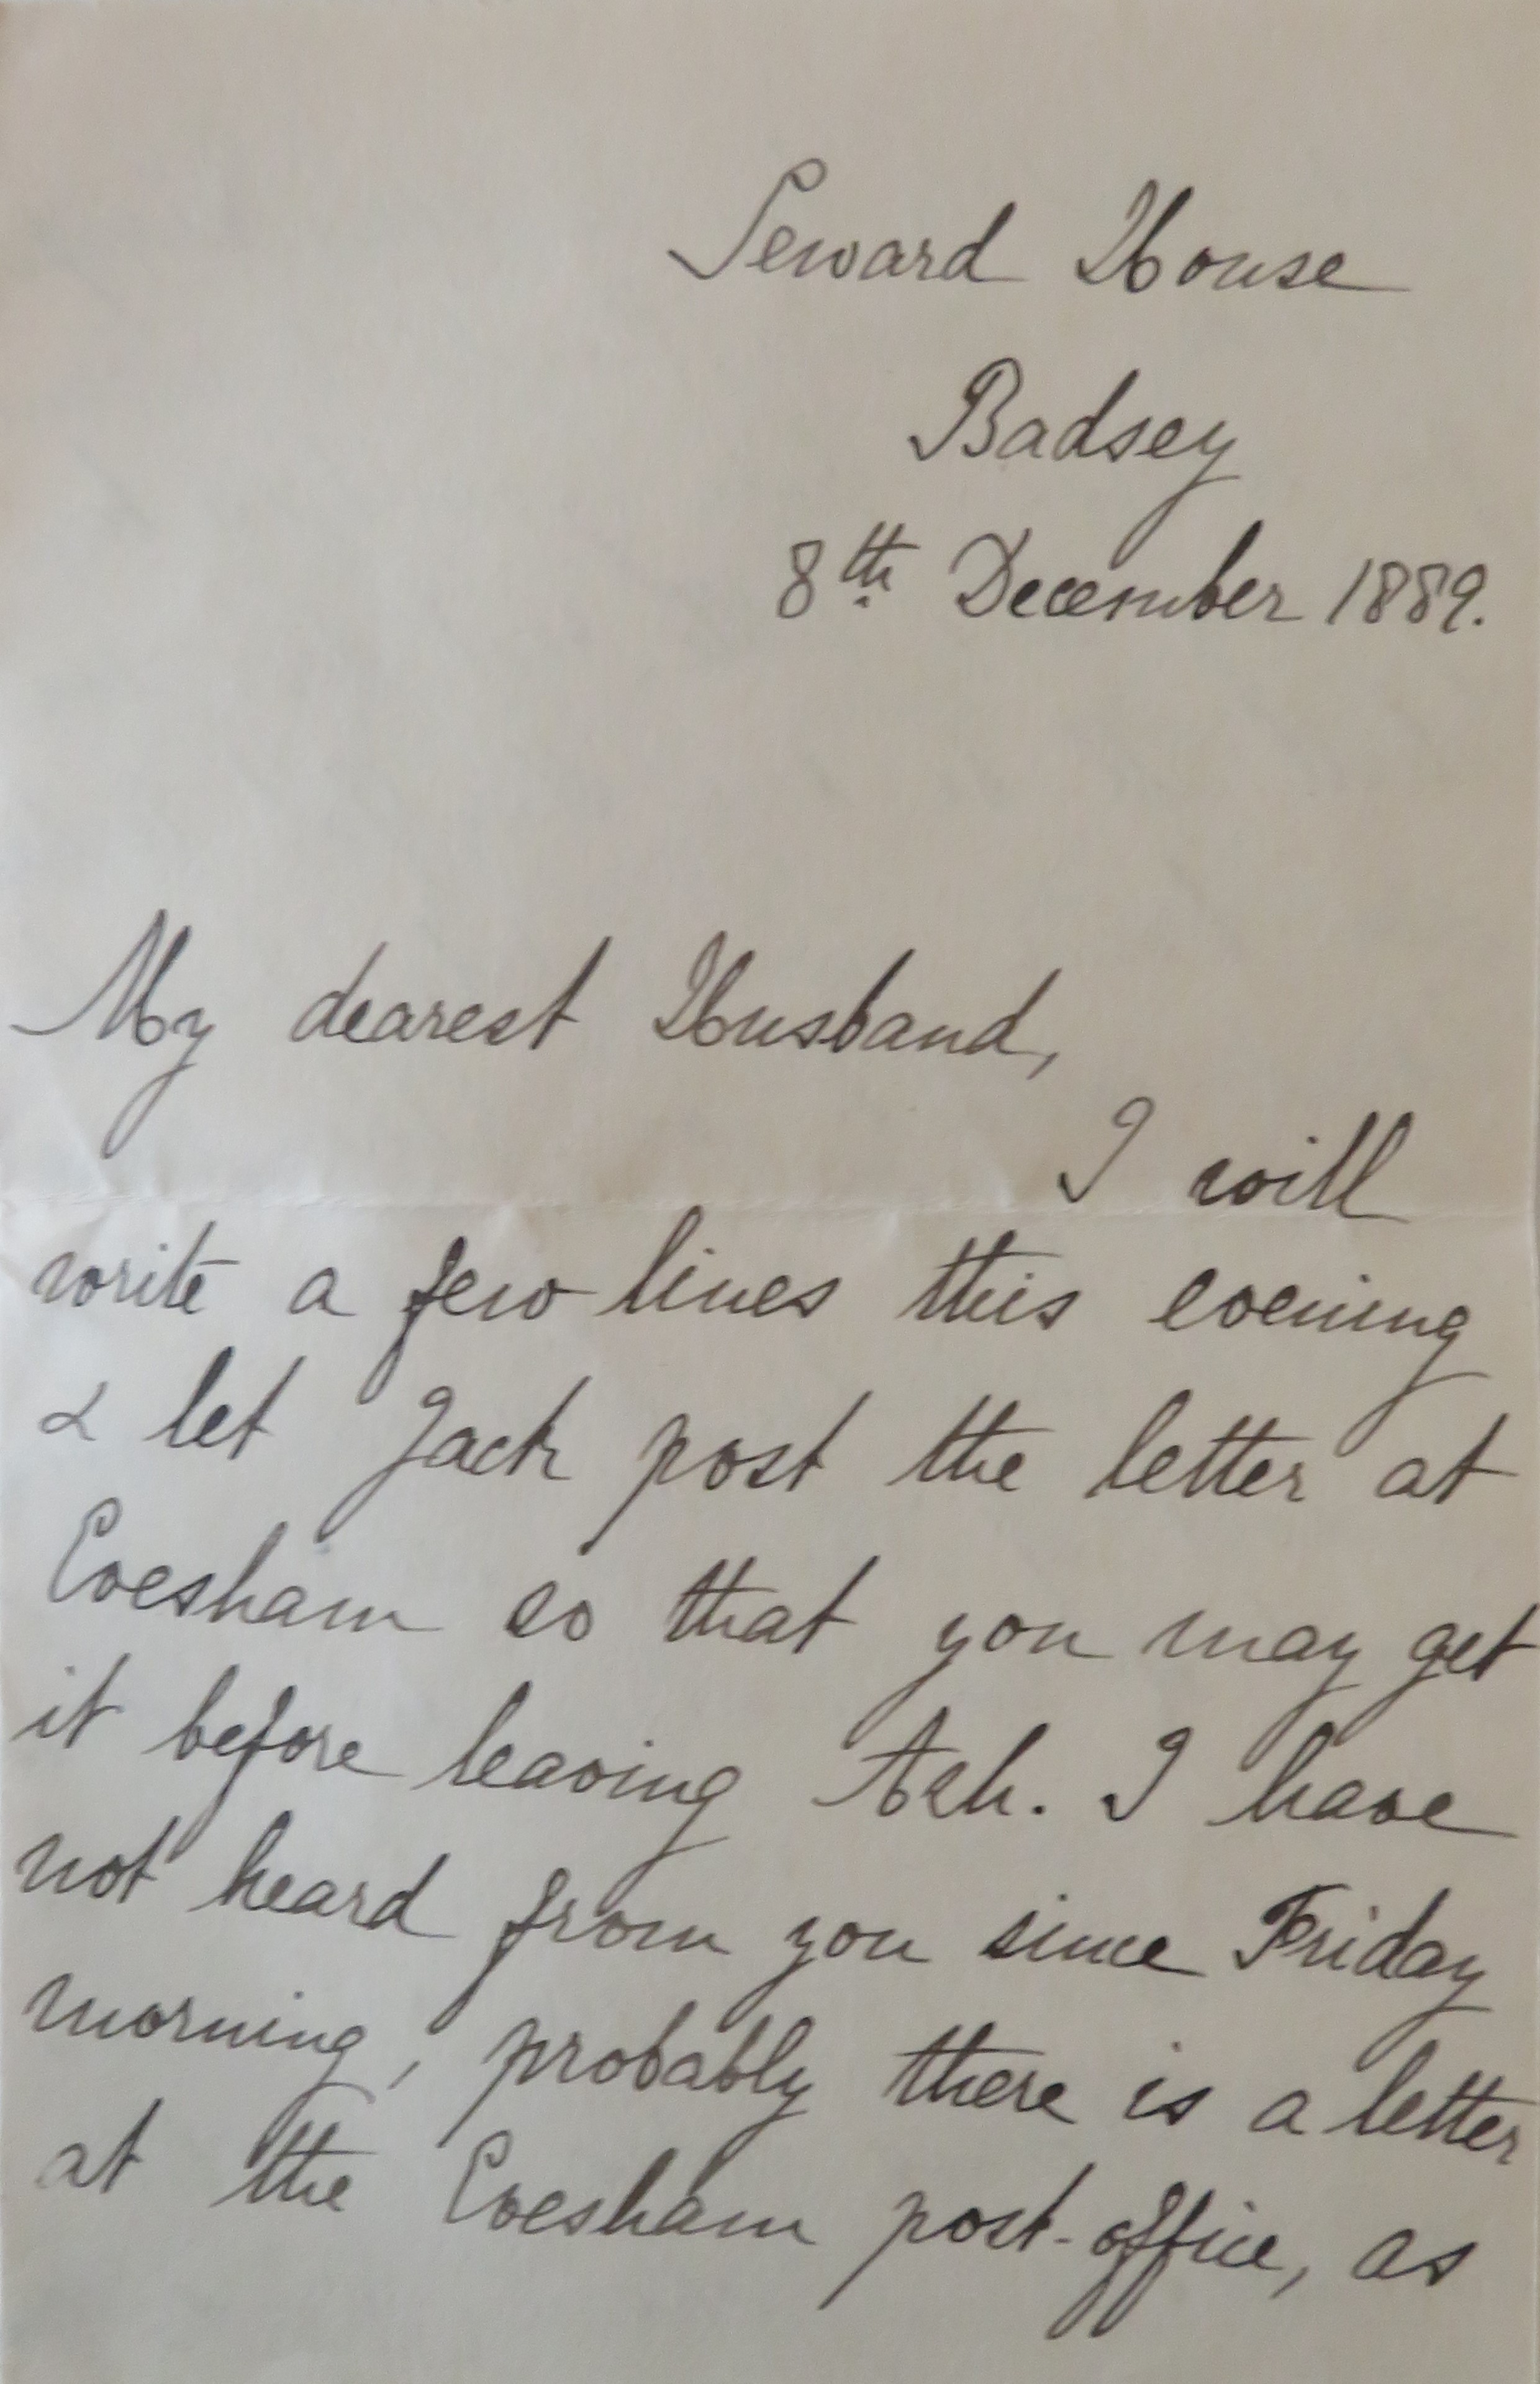 Seward House
Badsey
8th December 1889.
My dearest Husband,
I will
write a few lines this evening
& let Jack post the letter at
Evesham so that you may get
it before leaving Ash. I have
not heard from you since Friday
morning, probably there is a letter
at the Evesham post-office, as